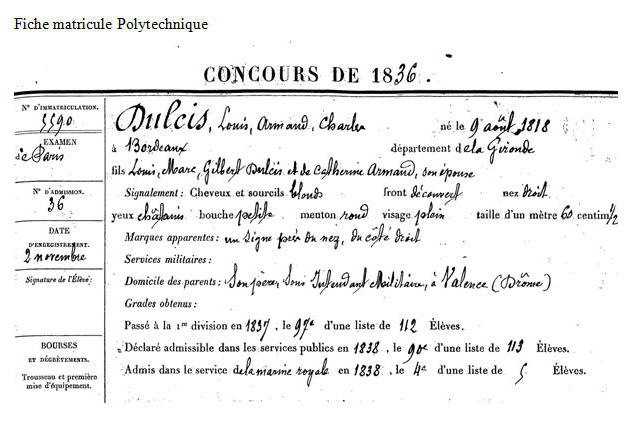 Fiche matricule Polytechnique
CONCOURS DE 1836.
N° D'IMMATRICULATION.
5590
EXAMEN
de Paris
N° D'ADMISSION.
36
DATE
D'ENREGISTREMENT.
2 novembre
Signature de l'Élève:
BOURSES
ET DÉGRÈVEMENTS.
Trousseau et première
mise d'équipement.
Dulcis, Louis, Armand, Charles né le 9 août 1818
à Bordeaux département de la Gironde
fils Louis, Marc, Gilbert Dulcis et de Catherine Armand, son épouse
Signalement: Cheveux et sourcils blonds front découvert nez droit
yeux châtains bouche petite menton rond visage plein taille d'un mètre 60 centim 1/2
Marques apparentes: un signe près du nez, du côté droit
Services militaires:
Domicile des parents: Son père, Sous Intendant Militaire, à Valence (Drôme)
Grades obtenus:
Passé à la 1re division en 1837, le 97e d'une liste de 112 Élèves.
Déclaré admissible dans les services publics en 1838, le 90e d'une liste de 113 Élèves.
Admis dans le service de la marine royale en 1838, le 4e d'une liste de 5 Élèves.